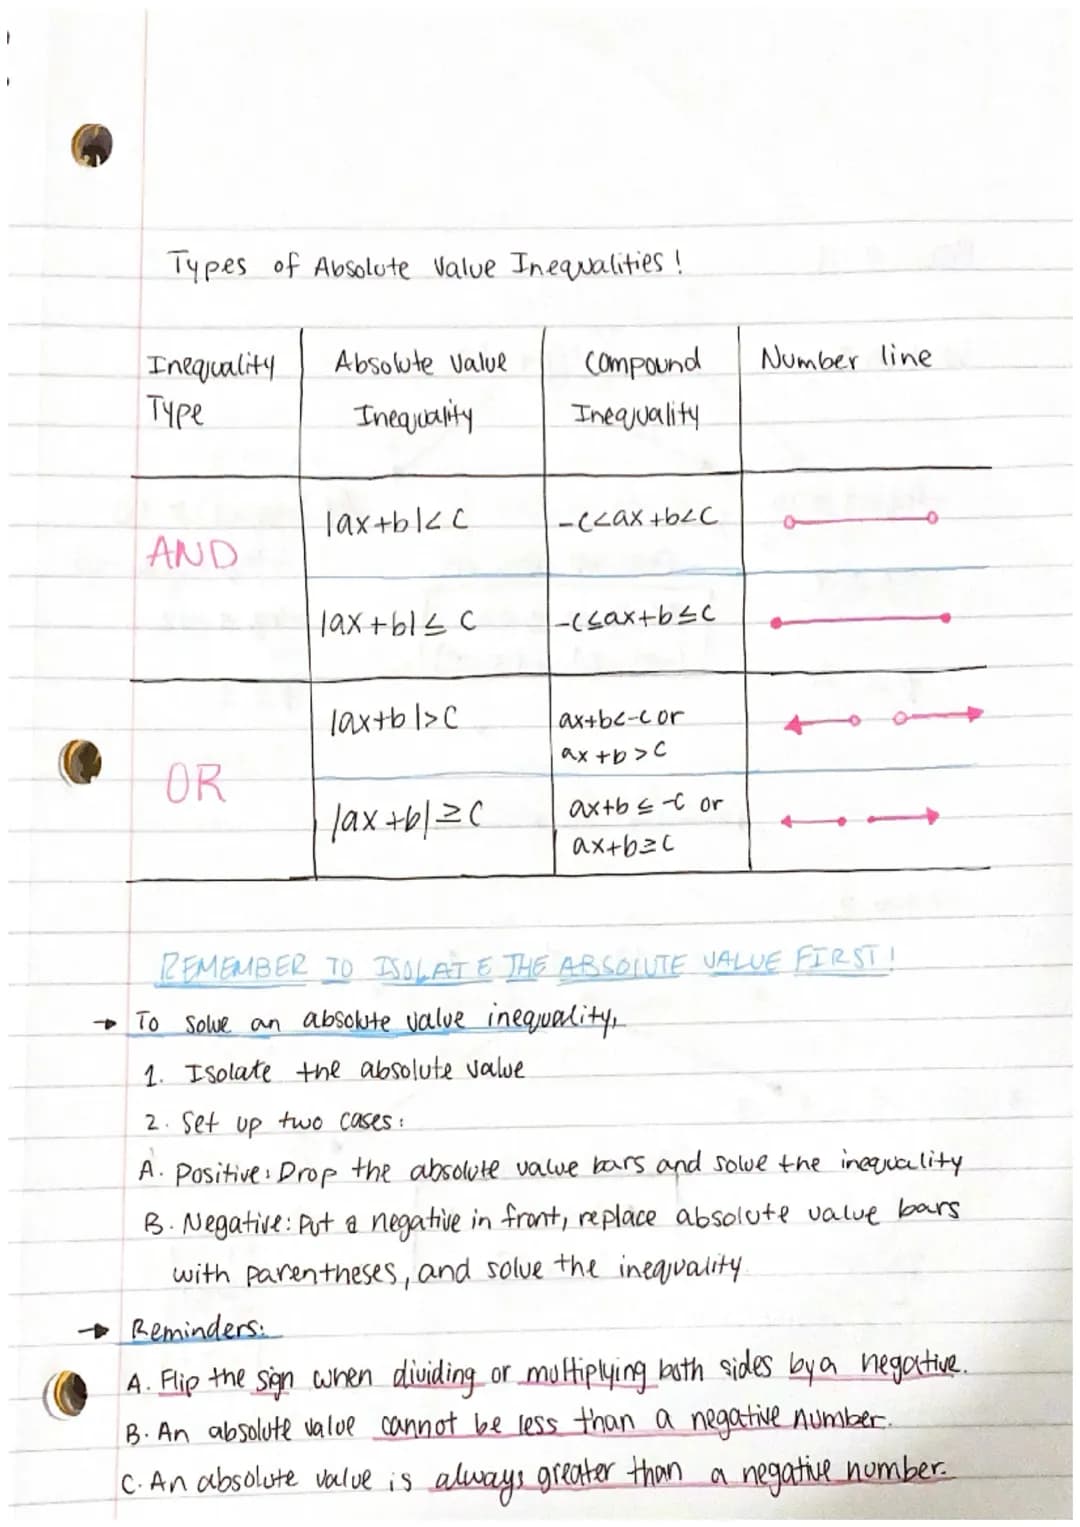 Types of Absolute Value Inequalities!
Inequality Type
Absolute Value Inequality
Compound Inequality
Number line
AND
|ax+b|< C
-c<ax+b<C
|ax+b|≤ C
-c≤ax+b≤C
OR
|ax+b|>C
ax+b<-c or
ax+b>C
|ax+b|≥C
ax+b≤-c or
ax+b≥C
REMEMBER TO ISOLATE THE ABSOLUTE VALUE FIRST!
→ To solve an absolute value inequality,
1. Isolate the absolute value
2. Set up two cases:
A. Positive: Drop the absolute value bars and solve the inequality
B. Negative: Put a negative in front, replace absolute value bars
with parentheses, and solve the inequality.
→ Reminders:
A. Flip the sign when dividing or multiplying both sides by a negative.
B. An absolute value cannot be less than a negative number.
C. An absolute value is always greater than a negative number.